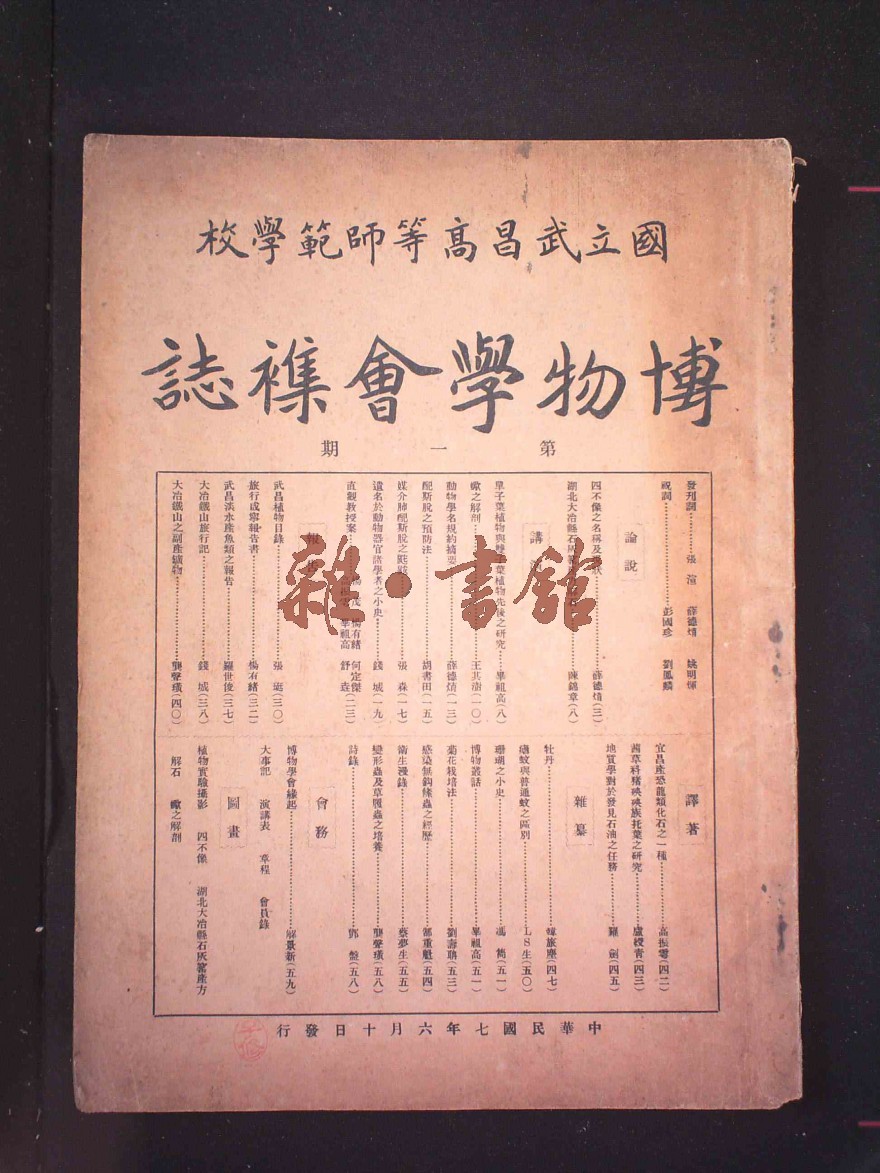 國立武昌高等師範學校
博物學會襍誌
第一期
發刊詞 張渲 薛德焴 姚明煇
祝詞 彭國珍 劉鳳麟
論說
四不像之名稱及 薛德焴(三)
湖北大冶縣石灰窰 陳鶴章(八)
講
單子葉植物與雙子葉植物先後之研究 畢祖高(八)
蠍之解剖 王其澍(一〇)
動物學名規約摘要 薛德焴(一三)
配斯脫之預防法 胡書田(一五)
媒介肺配斯脫之 張森(一七)
遺名於動物器官諸學者之小史 錢城(一九)
直觀教授案 楊有緒 何定傑 畢祖高 舒(二三)
武昌植物目錄 張珽(三〇)
旅行咸寧報告書 楊有緒(三二)
武昌淡水產魚類之報告 羅世俊(三七)
大冶鐵山旅行記 錢城(三八)
大冶鐵山之副產礦物 龔聲瓚(四〇)
譯著
宜昌產恐龍類化石之一種 高振雲(四二)
茜草科豬殃殃族托葉之研究 盧綬青(四三)
地質學對於發見石油之任務 羅劍(四五)
雜纂
牡丹 韓旅塵(四七)
瘧蚊與普通蚊之區別 LS生(五〇)
珊瑚之小史 馮(五一)
博物叢話 畢祖高(五一)
菊花栽培法 劉壽聃(五三)
感染無鈎絛蟲之經歷 鄒重魁(五四)
衛生漫錄 蔡夢生(五五)
變形蟲及草履蟲之培養 龔聲瓚(五八)
詩錄 鄧盤(五八)
會務
博物學會緣起 解景新(五九)
大事記 演講表 章程 會員錄
圖畫
植物實驗攝影 四不像 湖北大冶縣石灰窰產方解石 蠍之解剖
中華民國七年六月十日發行
雜·書館